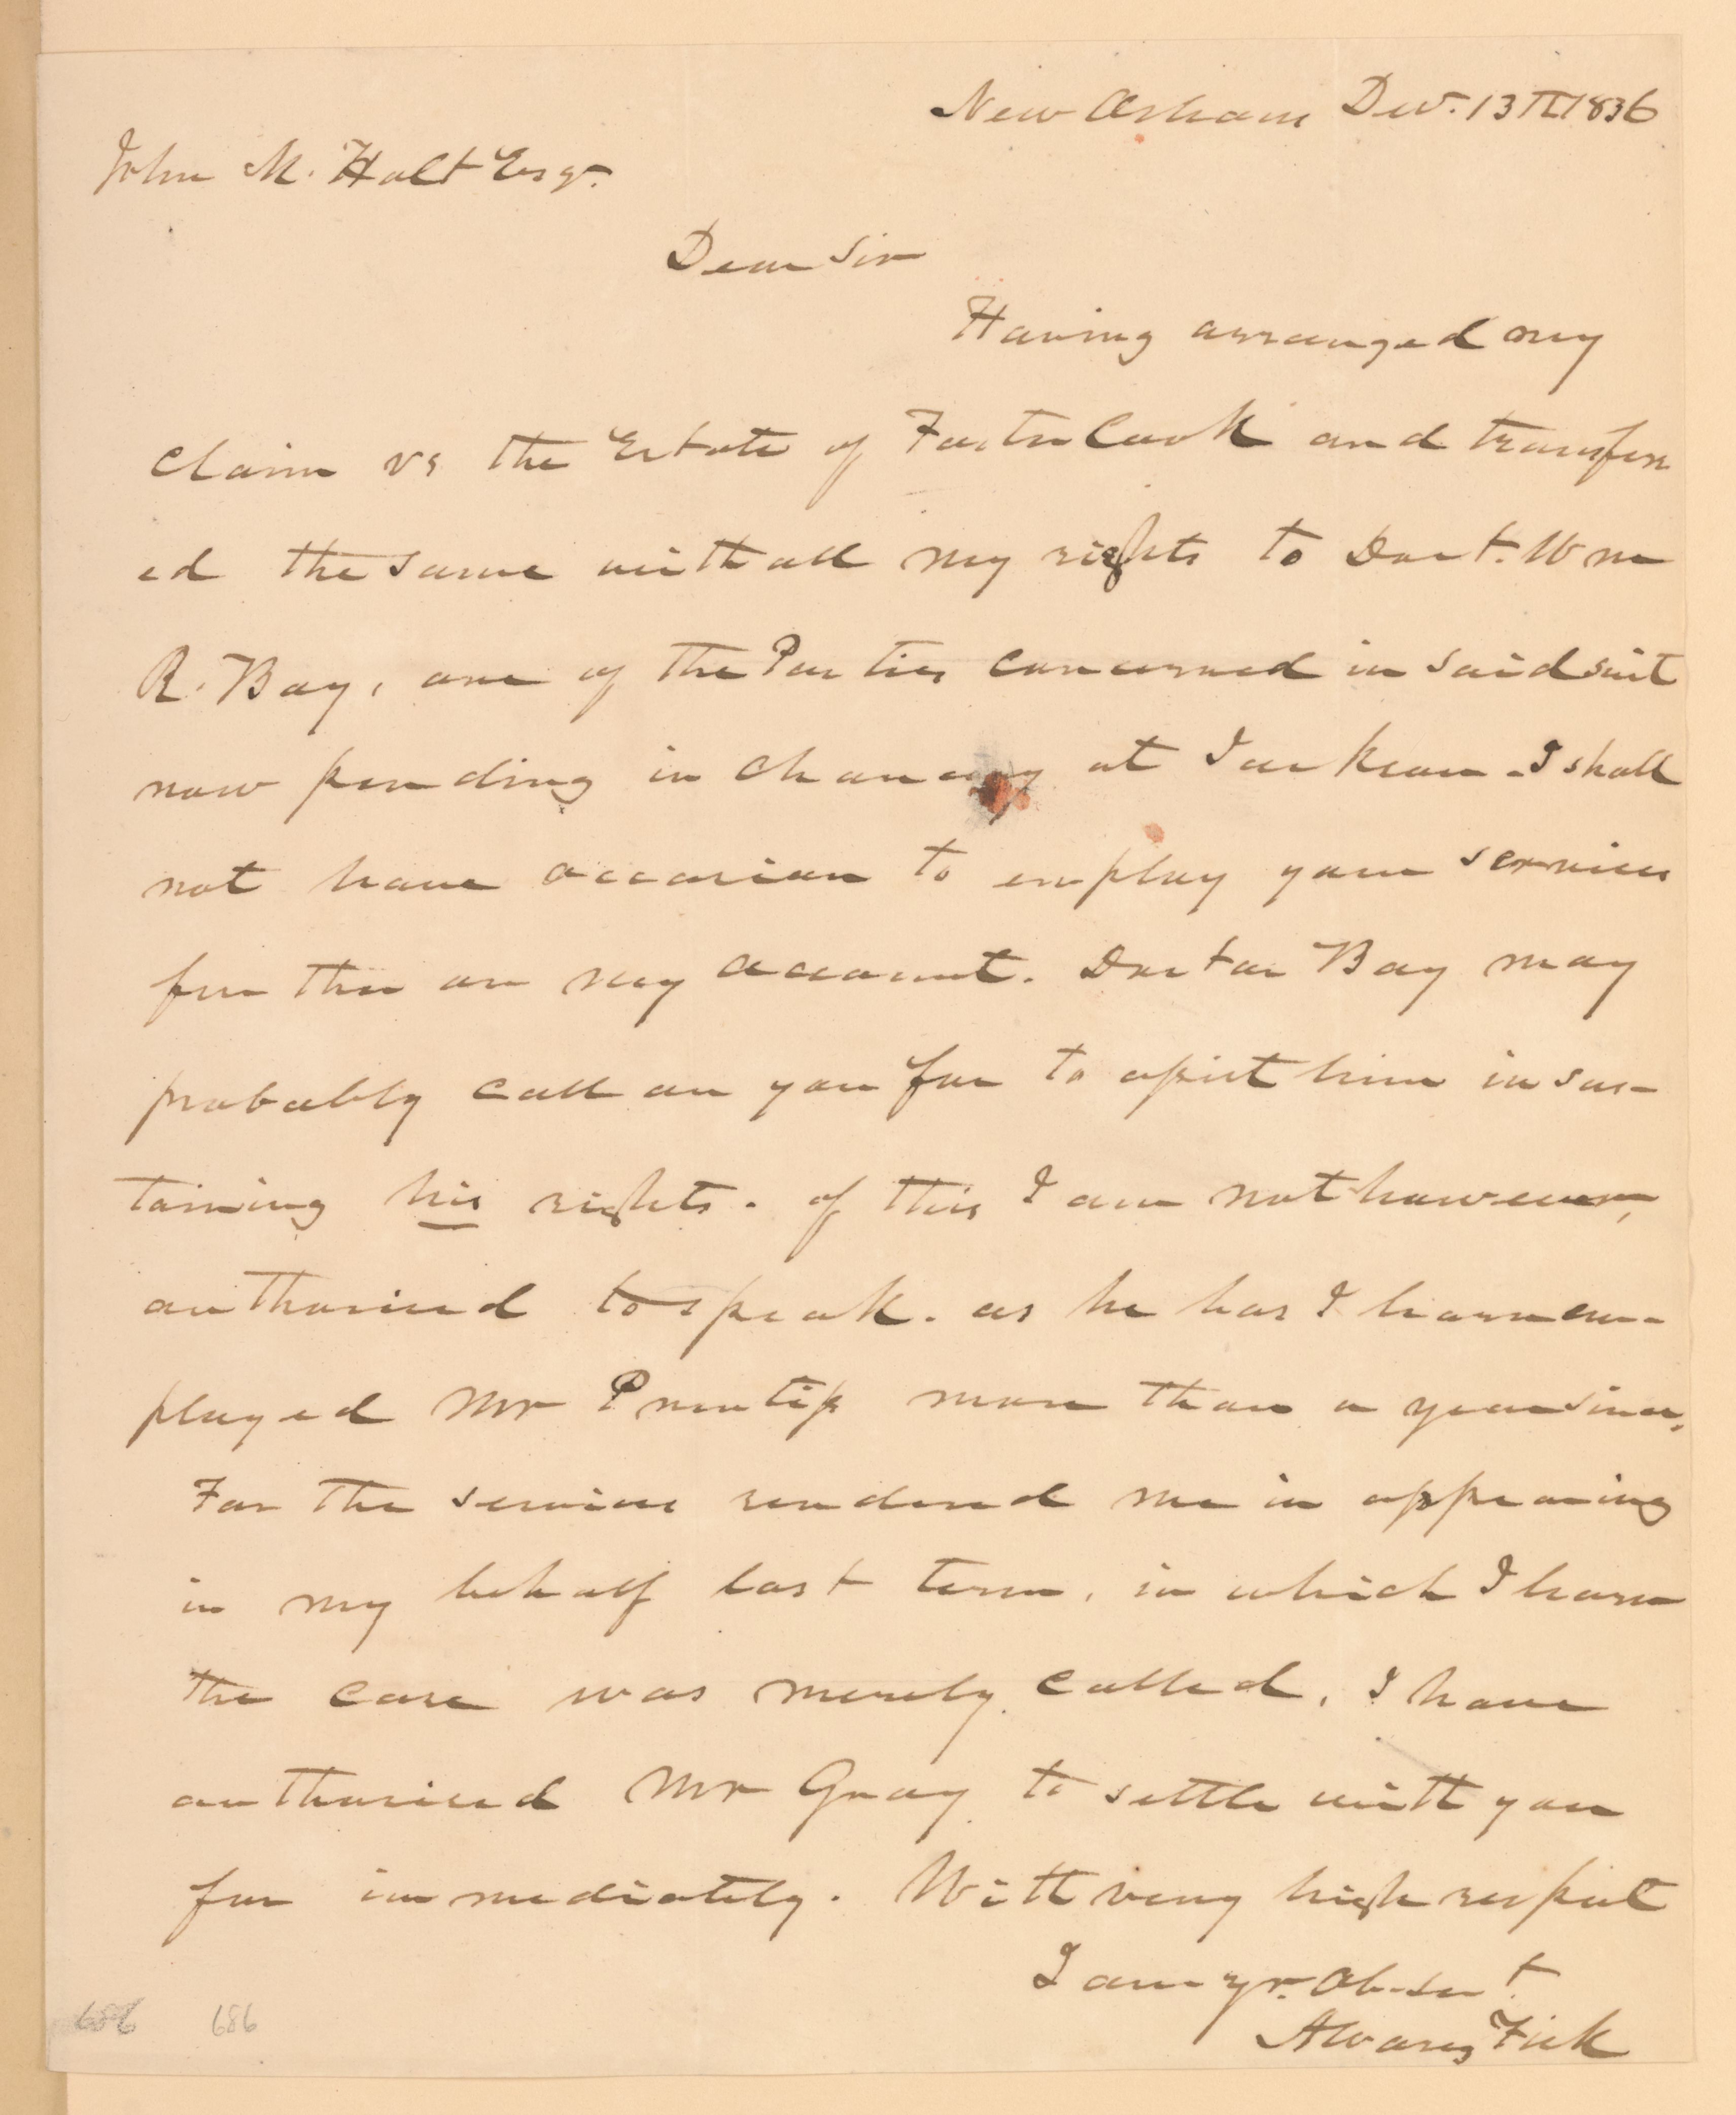 New Orleans Decr. 13th 1836
John M. Holt Esqr.
Dear Sir
Having arranged my
claim vs the Estate of Foster Cook and transfer
ed the same with all my rights to Doct. Wm
R. Bay, one of the Parties concerned in said suit
now pending in chancery at Jackson - I shall
not have occasion to employ your services
further on my account. Doctor Bay may
probably call on you for to assist him in sus-
taining his rights. of this I am not however,
authorised to speak. as he has I learn em-
ployed Mr Prentiss more than a year since,
For the services rendered me in appearing
in my behalf last term, in which I learn
the case was merely called, I have
authorised Mr Gray to settle with you
for immediately. With very high respect
I am yr. Ob. sert.
Alvarez Fisk
686 686